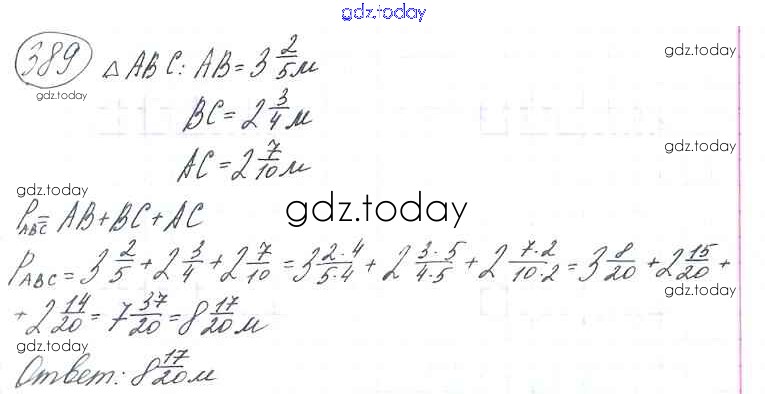 gdz.today
389 △ABC: AB = 3 2/5 м gdz.today
gdz.today
BC = 2 3/4 м
gdz.today
AC = 2 7/10 м
gdz.today
P_ABC = AB + BC + AC gdz.today
P_ABC = 3 2/5 + 2 3/4 + 2 7/10 = 3 2·4/5·4 + 2 3·5/4·5 + 2 7·2/10·2 = 3 8/20 + 2 15/20 +
gdz.today
+ 2 14/20 = 7 37/20 = 8 17/20 м
gdz.today
Ответ: 8 17/20 м gdz.today